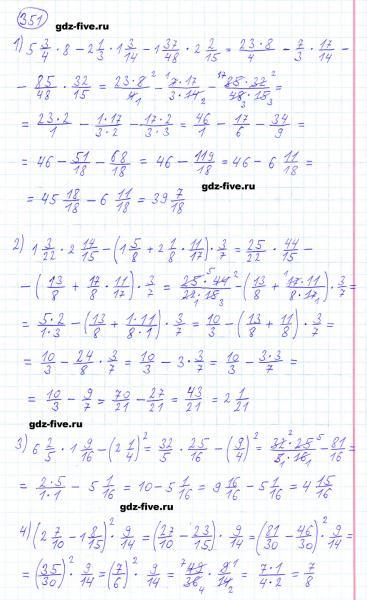 351
gdz-five.ru
1) 5 3/4 · 8 − 2 1/3 · 1 3/14 − 1 37/48 · 2 2/15 = 23·8/4 − 7/3 · 17/14 −
− 85/48 · 32/15 = 23·8²/4₁ − ¹7·17/3·14₂ − ¹⁷85·32²/48₃·15₃ =
= 23·2/1 − 1·17/3·2 − 17·2/3·3 = 46/1 − 17/6 − 34/9 =
= 46 − 51/18 − 68/18 = 46 − 119/18 = 46 − 6 11/18 =
gdz-five.ru
= 45 18/18 − 6 11/18 = 39 7/18
gdz-five.ru
2) 1 3/22 · 2 14/15 − (1 5/8 + 2 1/8 · 11/17) · 3/7 = 25/22 · 44/15 −
− (13/8 + 17/8 · 11/17) · 3/7 = ⁵25·44²/22₁·15₃ − (13/8 + ¹17·11/8·17₁) · 3/7 =
= 5·2/1·3 − (13/8 + 1·11/8·1) · 3/7 = 10/3 − (13/8 + 11/8) · 3/7 =
= 10/3 − 24/8 · 3/7 = 10/3 − 3 · 3/7 = 10/3 − 3·3/7 =
= 10/3 − 9/7 = 70/21 − 27/21 = 43/21 = 2 1/21
gdz-five.ru
3) 6 2/5 · 1 9/16 − (2 1/4)² = 32/5 · 25/16 − (9/4)² = 32²·25⁵/5₁·16₁ − 81/16 =
= 2·5/1·1 − 5 1/16 = 10 − 5 1/16 = 9 16/16 − 5 1/16 = 4 15/16
gdz-five.ru
4) (2 7/10 − 1 8/15)² · 9/14 = (27/10 − 23/15)² · 9/14 = (81/30 − 46/30)² · 9/14 =
= (35/30)² · 9/14 = (7/6)² · 9/14 = ⁷49·9¹/36₄·14₂ = 7·1/4·2 = 7/8
gdz-five.ru